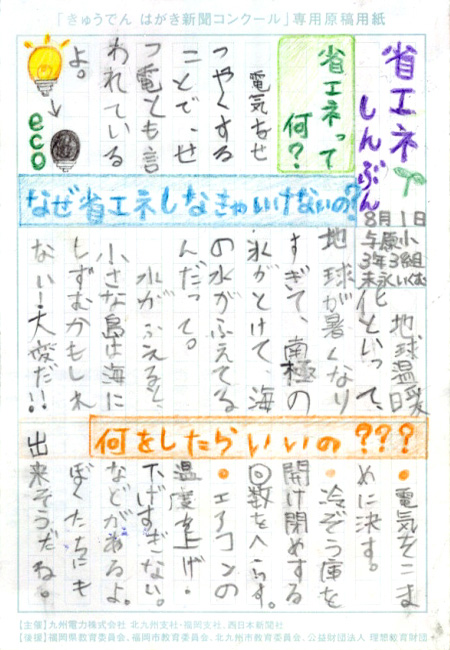 「きゅうでん はがき新聞コンクール」専用原稿用紙
省エネ
しんぶん
8月1日
与原小
3年3組
末永いくむ
省エネって
何？
電気をせ
つやくする
ことで、せ
つ電とも言
われている
よ。
eco
なぜ省エネしなきゃいけないの？
地球温暖
化といって、
地球が暑くなり
すぎて、南極の
氷がとけて、海
の水がふえてる
んだって。
水がふえると、
小さな島は海に
しずむかもしれ
ない！大変だ！！
何をしたらいいの？？？
●電気をこま
めに決す。
●冷ぞう庫を
開け閉めする
回数をへらす。
●エアコンの
温度を上げ・
下げすぎない。
などがあるよ。
ぼくたちにも
出来そうだね。
【主催】九州電力株式会社 北九州支社・福岡支社、西日本新聞社
【後援】福岡県教育委員会、福岡市教育委員会、北九州市教育委員会、公益財団法人 理想教育財団